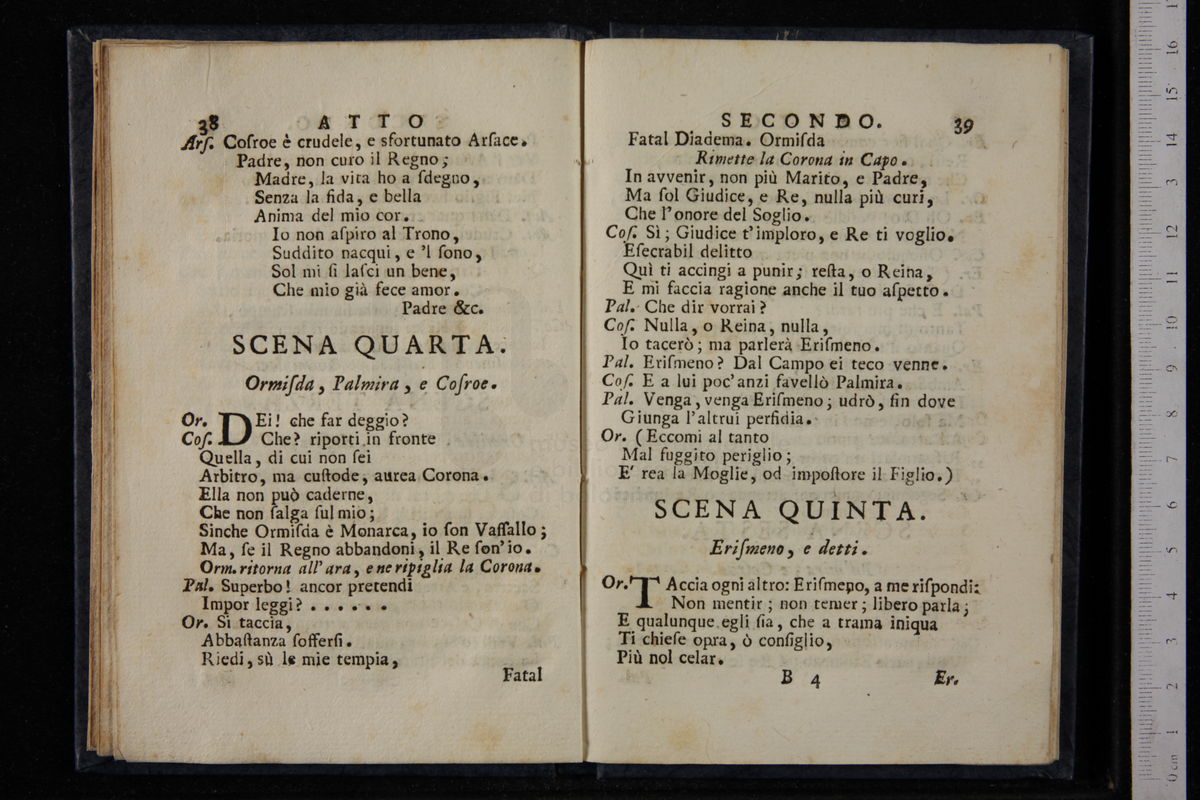 38 ATTO
Arſ. Coſroe è crudele, e sfortunato Arſace.
Padre, non curo il Regno;
Madre, la vita ho a ſdegno,
Senza la fida, e bella
Anima del mio cor.
Io non aſpiro al Trono,
Suddito nacqui, e 'l ſono,
Sol mi ſi laſci un bene,
Che mio già fece amor.
Padre &c.
SCENA QUARTA.
Ormiſda, Palmira, e Coſroe.
Or. DEi! che far deggio?
Coſ. Che? riporti in fronte
Quella, di cui non ſei
Arbitro, ma cuſtode, aurea Corona.
Ella non può caderne,
Che non ſalga ſul mio;
Sinche Ormiſda è Monarca, io ſon Vaſſallo;
Ma, ſe il Regno abbandoni, il Re ſon' io.
Orm. ritorna all' ara, e ne ripiglia la Corona.
Pal. Superbo! ancor pretendi
Impor leggi? . . . . . .
Or. Si taccia,
Abbaſtanza ſofferſi.
Riedi, sù le mie tempia,
Fatal
SECONDO. 39
Fatal Diadema. Ormiſda
Rimette la Corona in Capo.
In avvenir, non più Marito, e Padre,
Ma ſol Giudice, e Re, nulla più curi,
Che l'onore del Soglio.
Coſ. Sì; Giudice t'imploro, e Re ti voglio.
Eſecrabil delitto
Quì ti accingi a punir; reſta, o Reina,
E mi faccia ragione anche il tuo aſpetto.
Pal. Che dir vorrai?
Coſ. Nulla, o Reina, nulla,
Io tacerò; ma parlerà Eriſmeno.
Pal. Eriſmeno? Dal Campo ei teco venne.
Coſ. E a lui poc'anzi favellò Palmira.
Pal. Venga, venga Eriſmeno; udrò, fin dove
Giunga l'altrui perfidia.
Or. (Eccomi al tanto
Mal fuggito periglio;
E' rea la Moglie, od impoſtore il Figlio.)
SCENA QUINTA.
Eriſmeno, e detti.
Or. TAccia ogni altro: Eriſmeno, a me riſpondi:
Non mentir; non temer; libero parla;
E qualunque egli ſia, che a trama iniqua
Ti chieſe opra, ò conſiglio,
Più nol celar.
B 4 Er.
0 cm 1 2 3 4 5 6 7 8 9 10 11 12 13 14 15 16